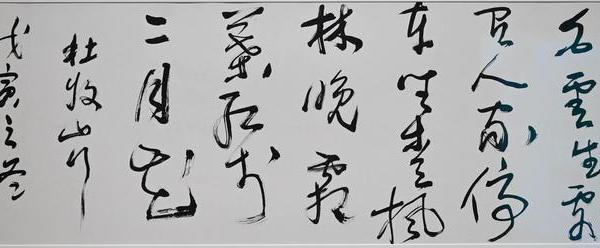 白雲生處
有人家停
車坐愛楓
林晚霜
葉紅於
二月花
杜牧山行
戊寅之冬